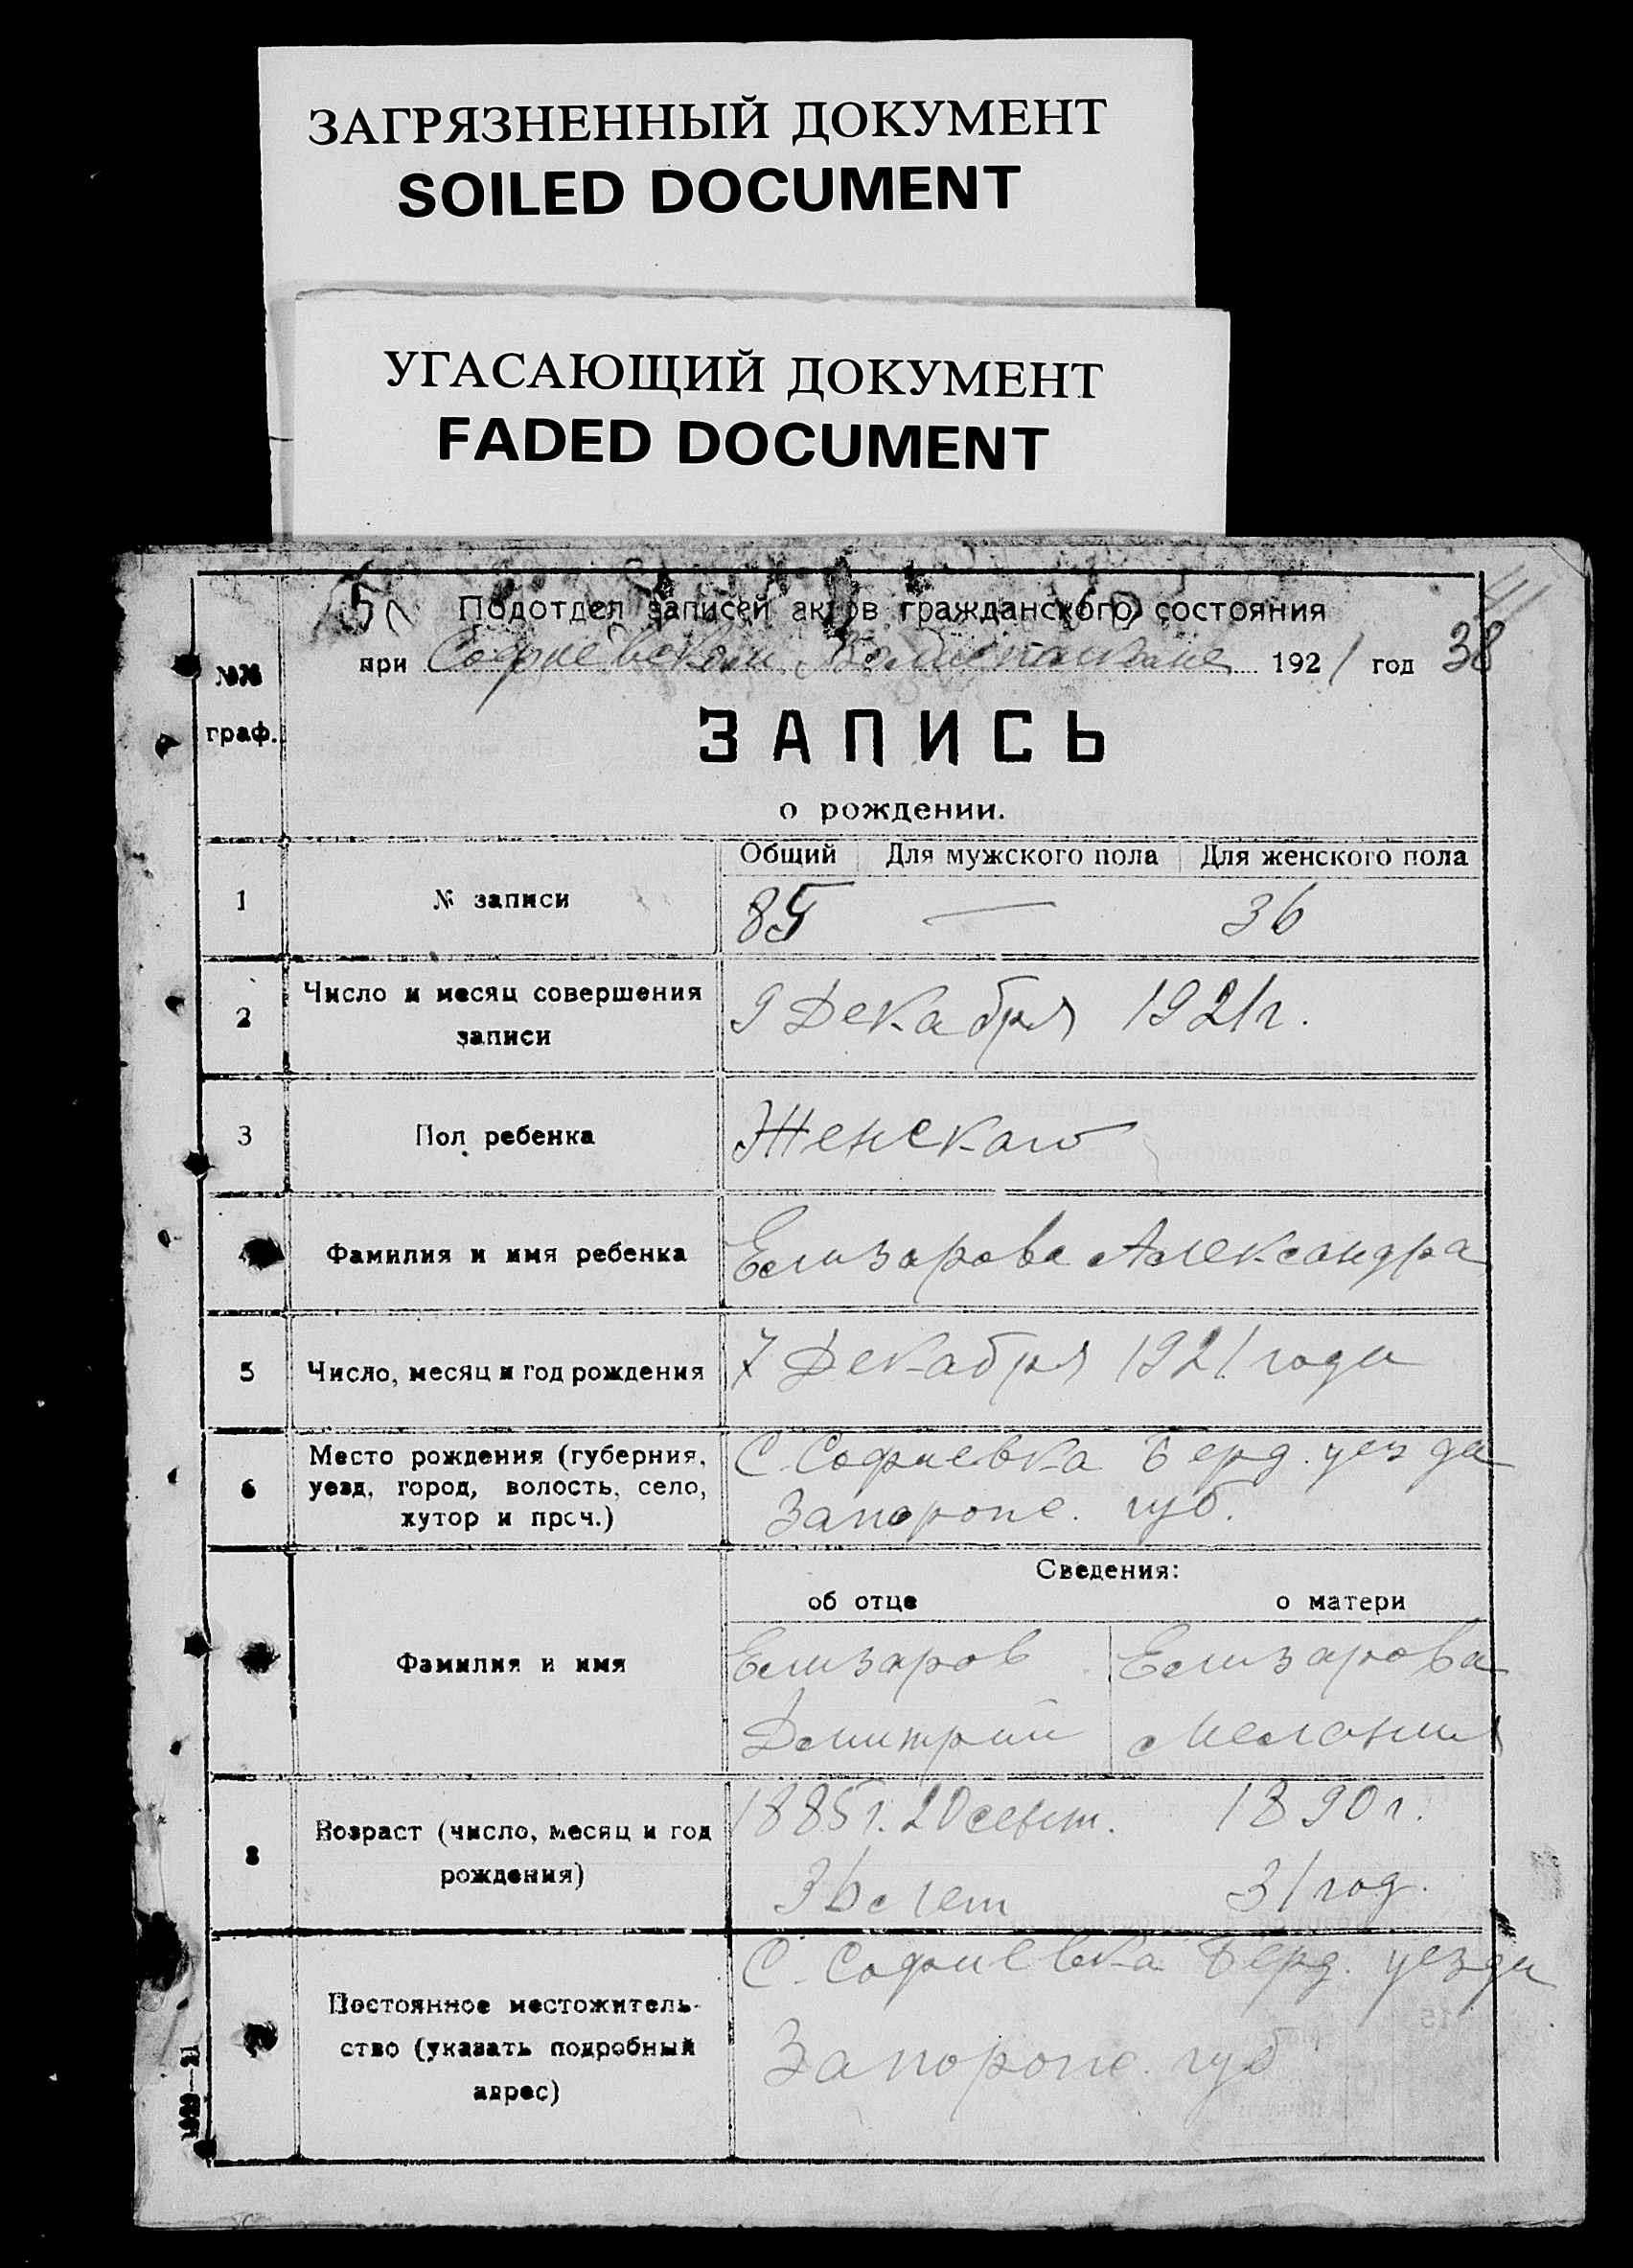 ЗАГРЯЗНЕННЫЙ ДОКУМЕНТ
SOILED DOCUMENT
УГАСАЮЩИЙ ДОКУМЕНТ
FADED DOCUMENT
Подотдел записей актов гражданского состояния
при Софиевском 1921 год 38
№№
граф.
ЗАПИСЬ
о рождении.
Общий Для мужского пола Для женского пола
1 № записи 85 — 36
2 Число и месяц совершения
записи
9 Декабря 1921 г.
3 Пол ребенка Женскаго
Фамилия и имя ребенка Елизарова Александра
5 Число, месяц и год рождения 7 Декабря 1921 года
6 Место рождения (губерния,
уезд, город, волость, село,
хутор и проч.)
С. Софиевка Берд. уезда
Запорож. губ.
Сведения:
об отце о матери
Фамилия и имя
Елизаров Елизарова
Дмитрий Мелания
8 Возраст (число, месяц и год
рождения)
1885 г. 20 сент. 1890 г.
36 лет 31 год.
Постоянное местожитель-
ство (указать подробный
адрес)
С. Софиевка Берд. уезда
Запорож. губ